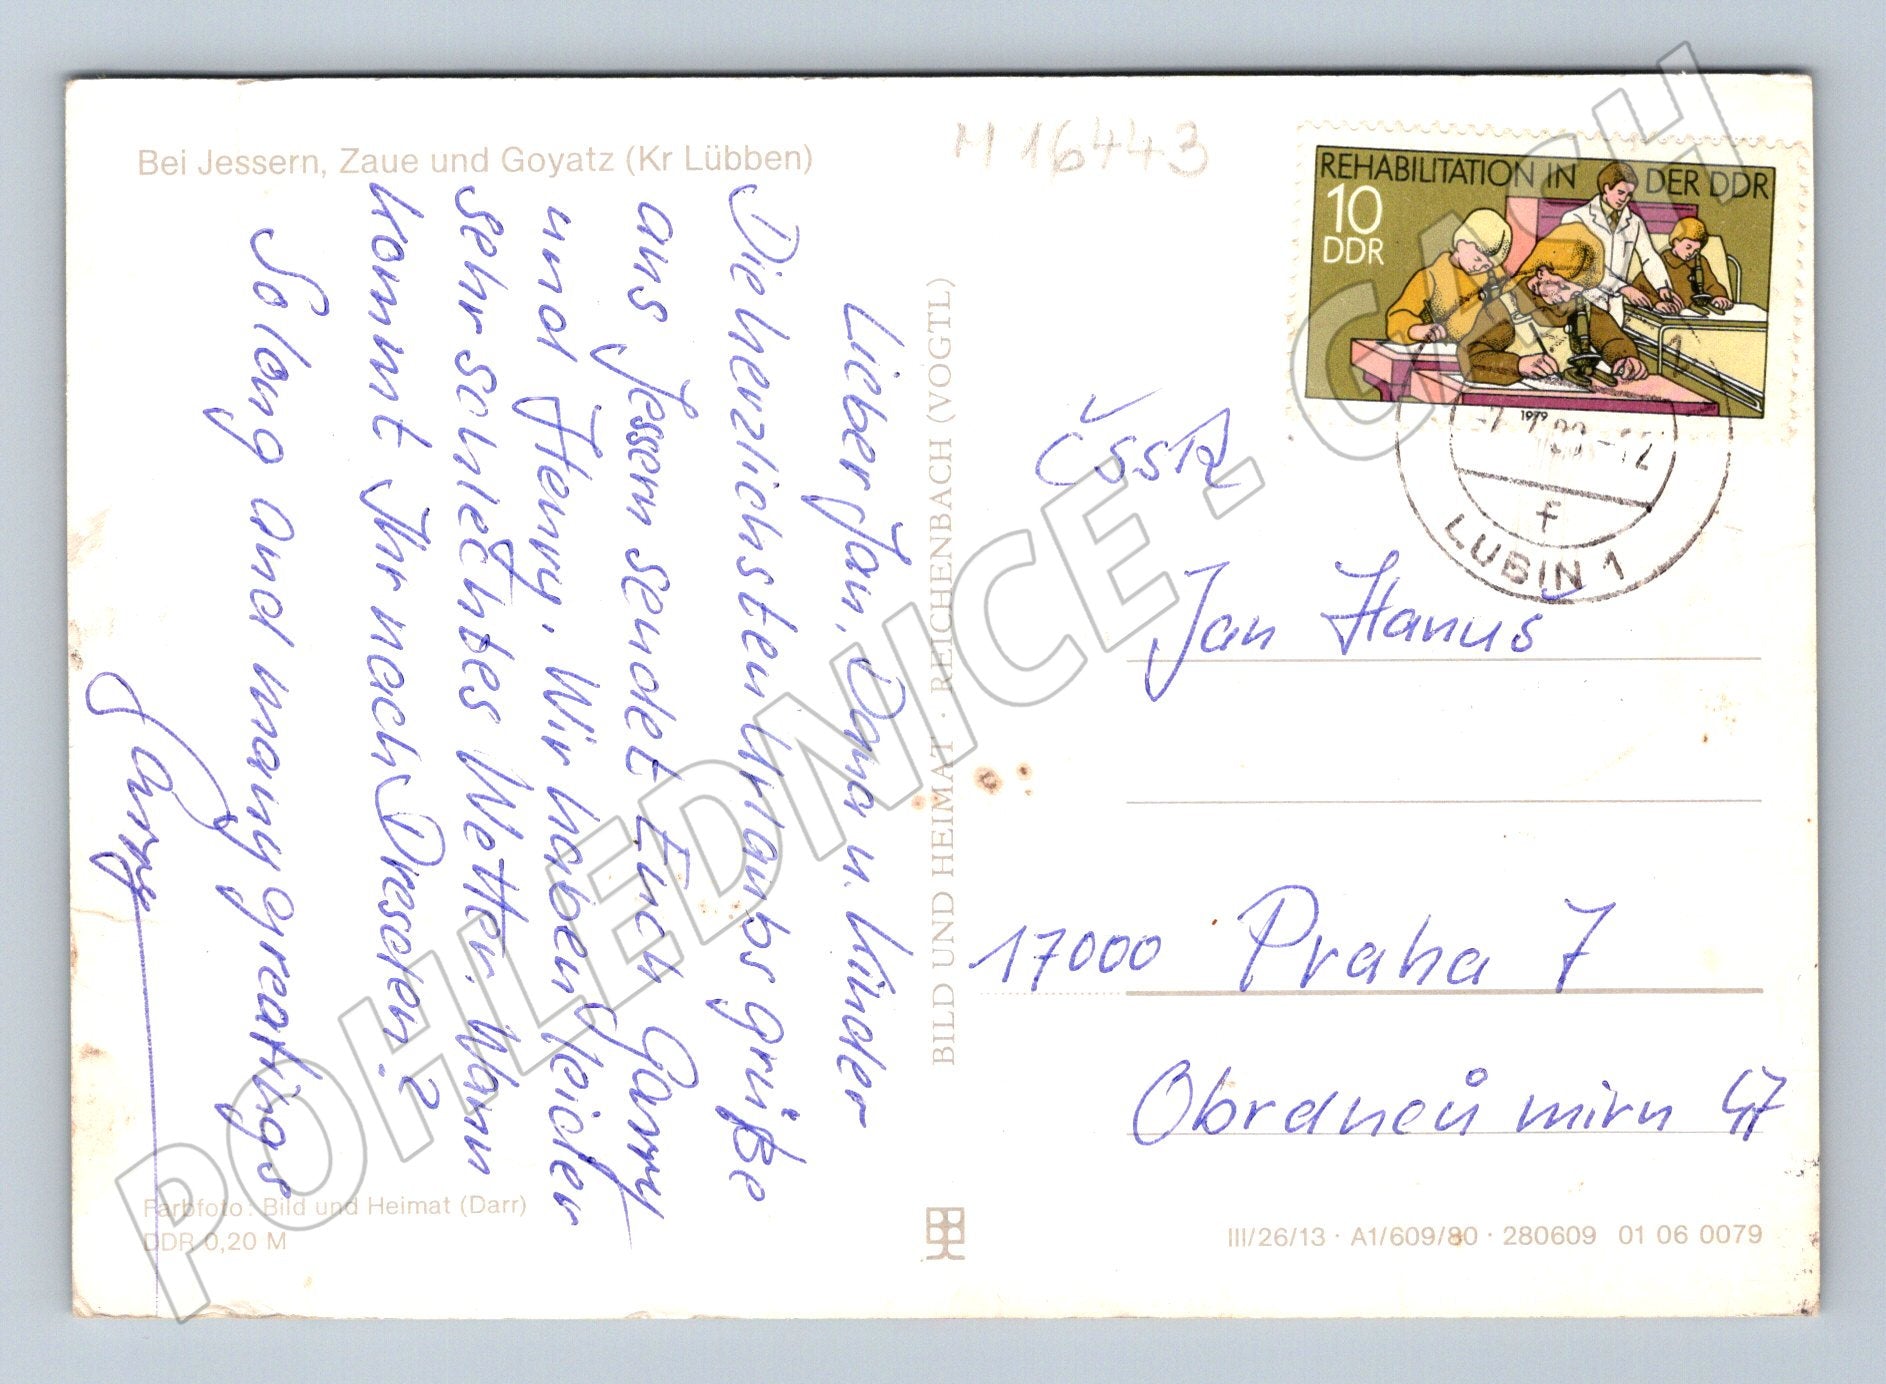 Bei Jessern, Zaue und Goyatz (Kr Lübben)
M 16443
REHABILITATION IN DER DDR
10
DDR
1979
LUBIN 1
f
Lieber Jan, Dana u. Kinder
Die herzlichsten Urlaubsgrüße
aus Jessern sendet Euch Garry
und Henry. Wir haben leider
sehr schlechtes Wetter. Wann
kommt Ihr nach Dresden?
So long and many greatings
Garry
BILD UND HEIMAT · REICHENBACH (VOGTL)
ČSSR
Jan Hanuš
17000 Praha 7
Obránců míru 47
Farbfoto: Bild und Heimat (Darr)
DDR 0,20 M
III/26/13 · A1/609/80 · 280609 01 06 0079
POHLEDNICE.CASH